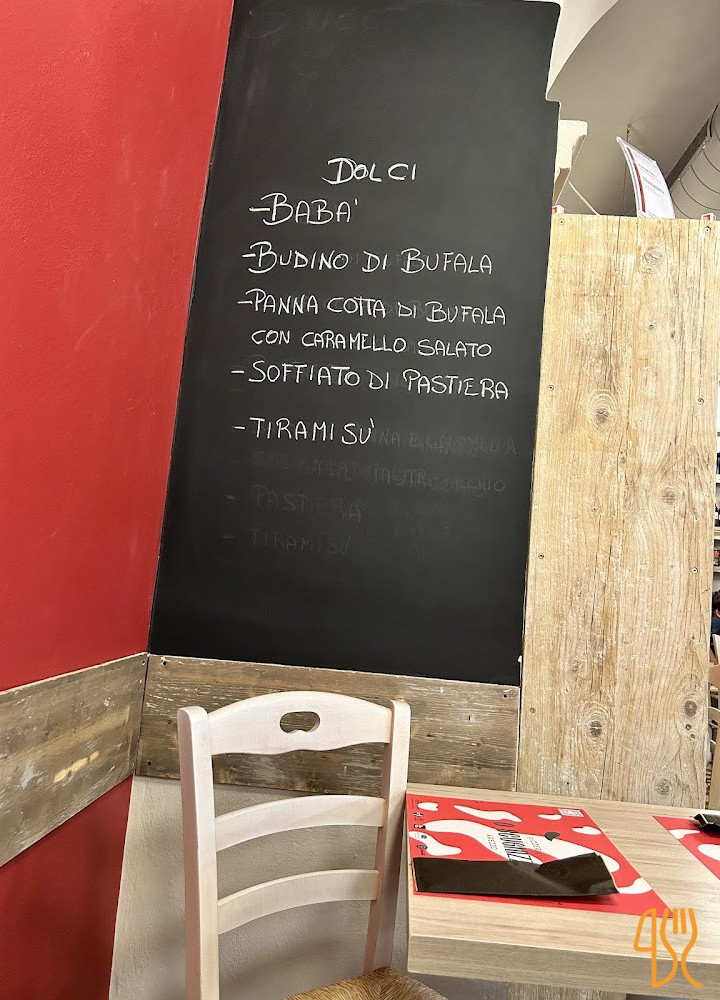 DOLCI
-BABA'
-BUDINO DI BUFALA
-PANNA COTTA DI BUFALA
CON CARAMELLO SALATO
-SOFFIATO DI PASTIERA
-TIRAMISU'
- PASTIERA
- TIRAMISU'